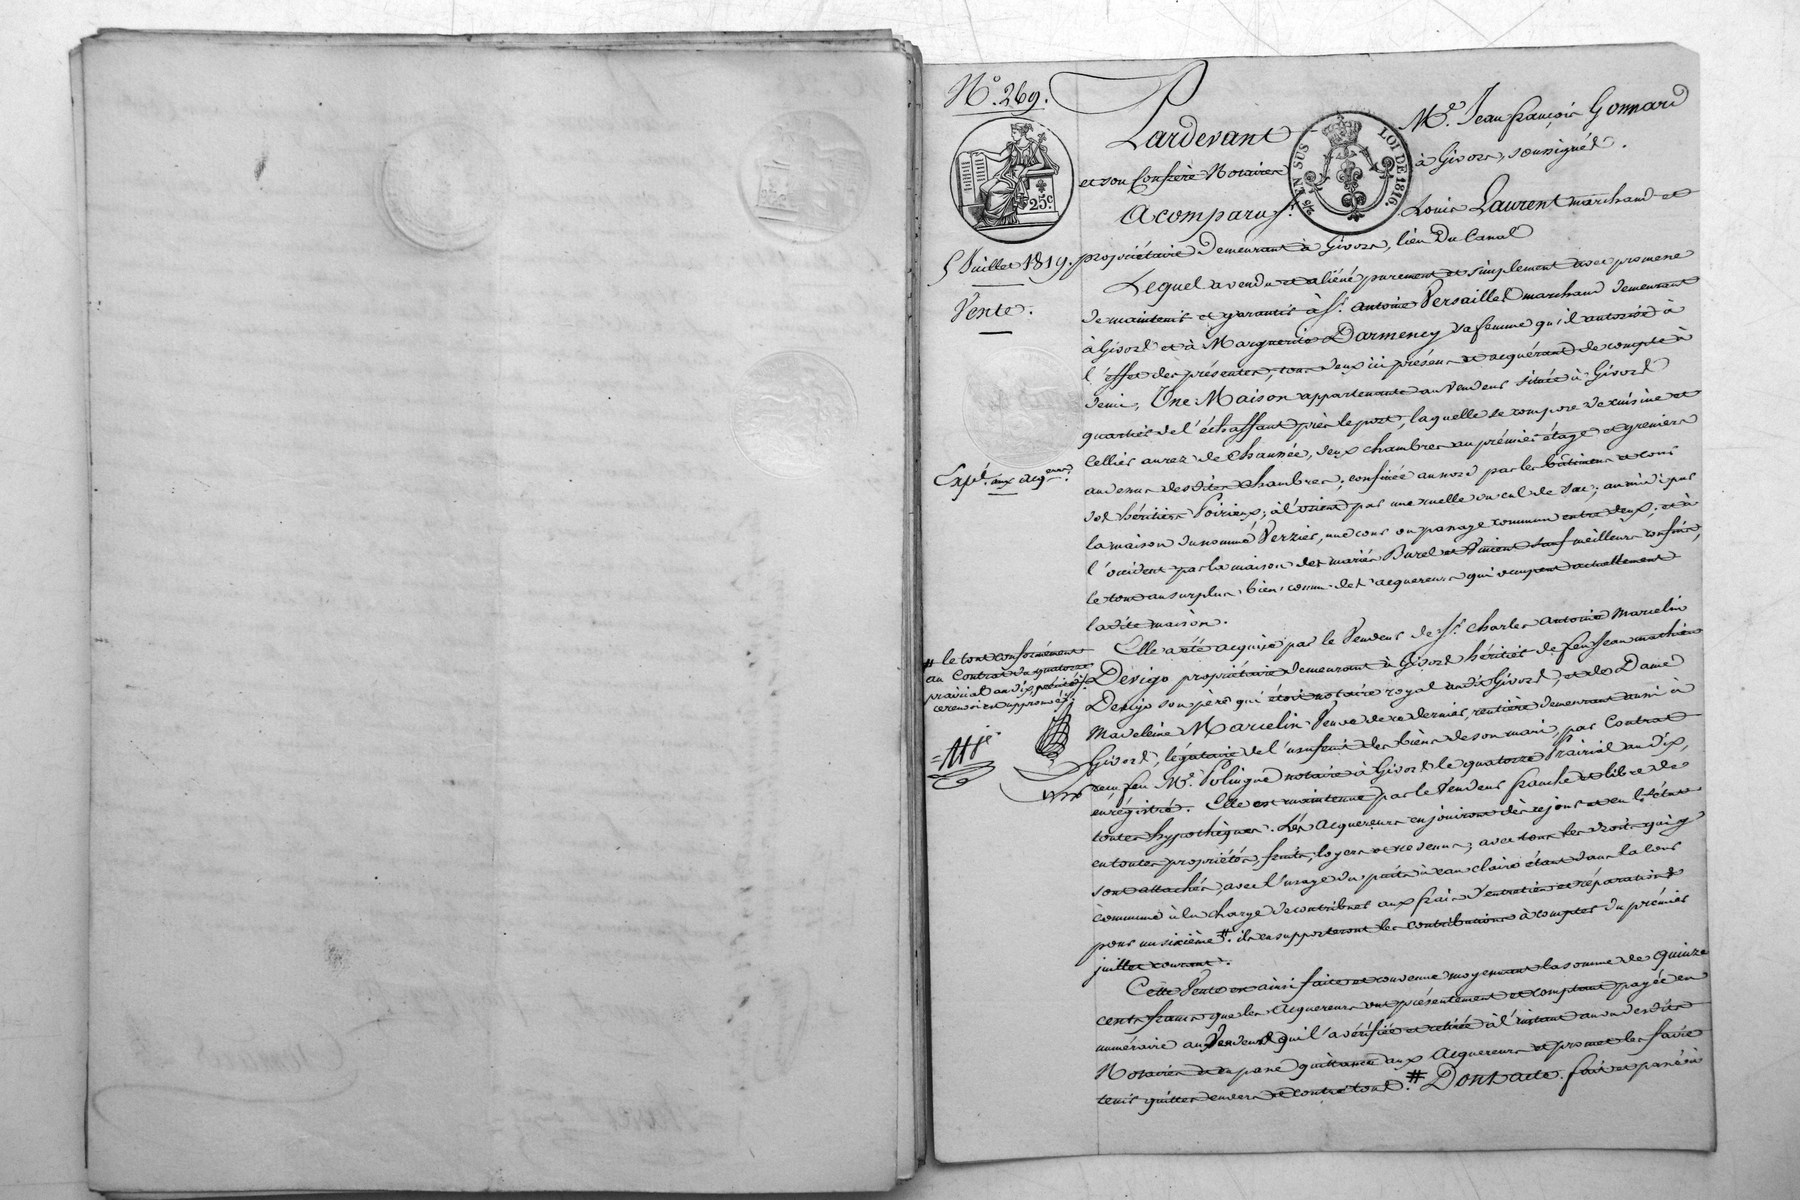 N.° 269.
Pardevant Me. Jean françois Gonnard
et son Confrère Notaires à Givors, soussignés.
25c.
EN SUS
LOI DE 1816.
A comparu Sr. Louis Laurent marchand et
5 Juillet 1819. propriétaire demeurant à Givors, lieu du Canal
Vente.
Lequel a vendu et aliéné purement et simplement avec promesse
de maintenir et garantir à Sr. Antoine Versailles marchand demeurant
à Givors et à Marguerite Darmency sa femme qu'il autorise à
l'effet des présentes, tous deux ici présens et acquérant de compte à
demi, Une Maison appartenante au Vendeur située à Givors
quartier de l'échaffant près le port, laquelle se compose de cuisine et
Cellier au rez de Chaussée, deux chambres au prémier étage et greniers
Expd. aux acqueurs.
au dessus desdites chambres; confinée au nord par les bâtimens et cour
des héritiers Poirieux; à l'orient par une ruelle ou cul de sac; au midi par
la maison du nommé Verzier, une cour ou passage commun entre deux; et à
l'occident par la maison des mariés Burel et Piment sauf meilleurs confins,
le tout au surplus bien connu des acquereurs qui occupent actuellement
ladite maison.
Elle a été acquise par le Vendeur de Sr. Charles Antoine Marcelin
# le tout conformément
au Contrat du quatorze
prairial an dix, précité;
ce renvoi est approuvé
Devigo propriétaire demeurant à Givors héritier de feu Jean mathieu
Devigo son père qui étoit notaire royal audit Givors, et de Dame
Madeleine Marcelin Veuve de ce dernier, rentière demeurant aussi à
Givors, légataire de l'usufruit des biens de son mari, par Contrat
reçu feu Me. Polingue notaire à Givors le quatorze Prairial an dix,
enrégistré. Elle est maintenue par le Vendeur franche et libre de
toutes hypothèques. Les Acquereurs en jouiront dès ce jour et en l'état
en toutes propriétés, fruits, loyers et revenus; avec tous les droits qui y
sont attachés, avec l'usage du puits à eau claire étant dans la cour
commune à la charge de contribuer aux frais d'entretien et réparations
pour un sixième #. ils en supporteront les contributions à compter du prémier
juillet courant.
Cette Vente est ainsi faite et convenue moyennant la somme de quinze
cents francs que les Acquereurs ont présentement et comptant payée en
numéraire au Vendeur qui l'a vérifiée et retirée à l'instant au vu desdits
Notaires et en passe quittance aux Acquereurs et promet les faire
tenir quittes envers et contre tous. # Dont acte. fait et passé à